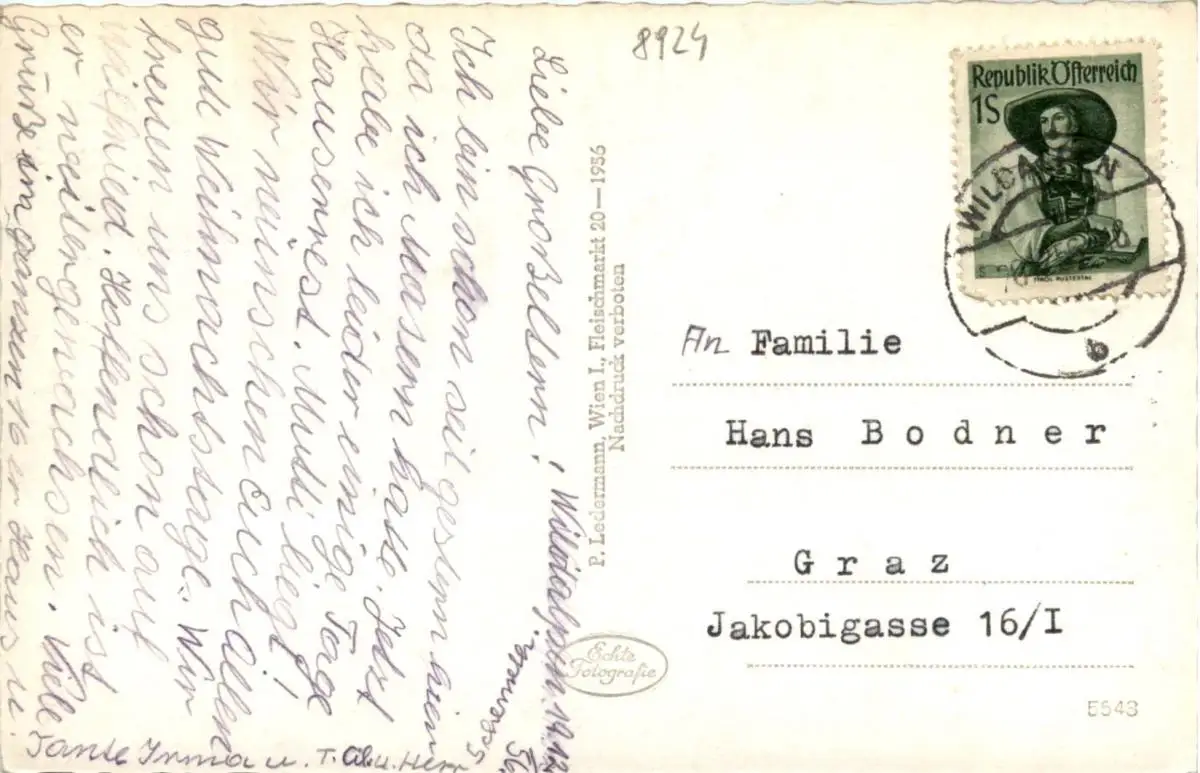 8924
Republik Österreich
1S
TIROL PUSTERTAL
WILDALPEN
b
Wildalpen 19.12.
56.
Liebe Großeltern!
Ich bin schon seit gestern heim
da ich Masern hatte. Jetzt
habe ich leider einige Tage
Hausarrest. Mutti liegt!
Wir wünschen Euch allen
gute Weihnachtstage. Wir
freuen uns schon auf
Wilfried. Hoffenedlich ist
er neilengewachsen. Viele
Grüße im ganzen
Haus u.
Tante Irma u. T.
u. Herr
P. Ledermann, Wien I., Fleischmarkt 20—1956
Nachdruck verboten
Echte
Fotografie
An Familie
Hans Bodner
Graz
Jakobigasse 16/I
5543